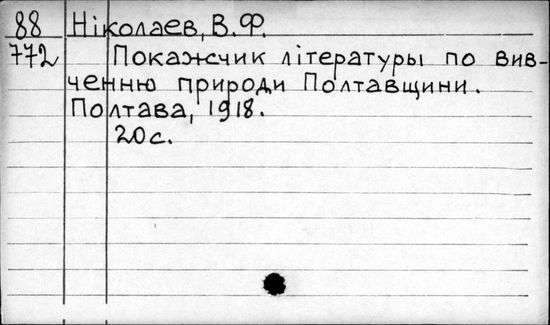 88 Ніколаев, В.Ф.
772 Покажсчик літературы по вив-
ченню природи Полтавщини.
Полтава, 1918.
20с.